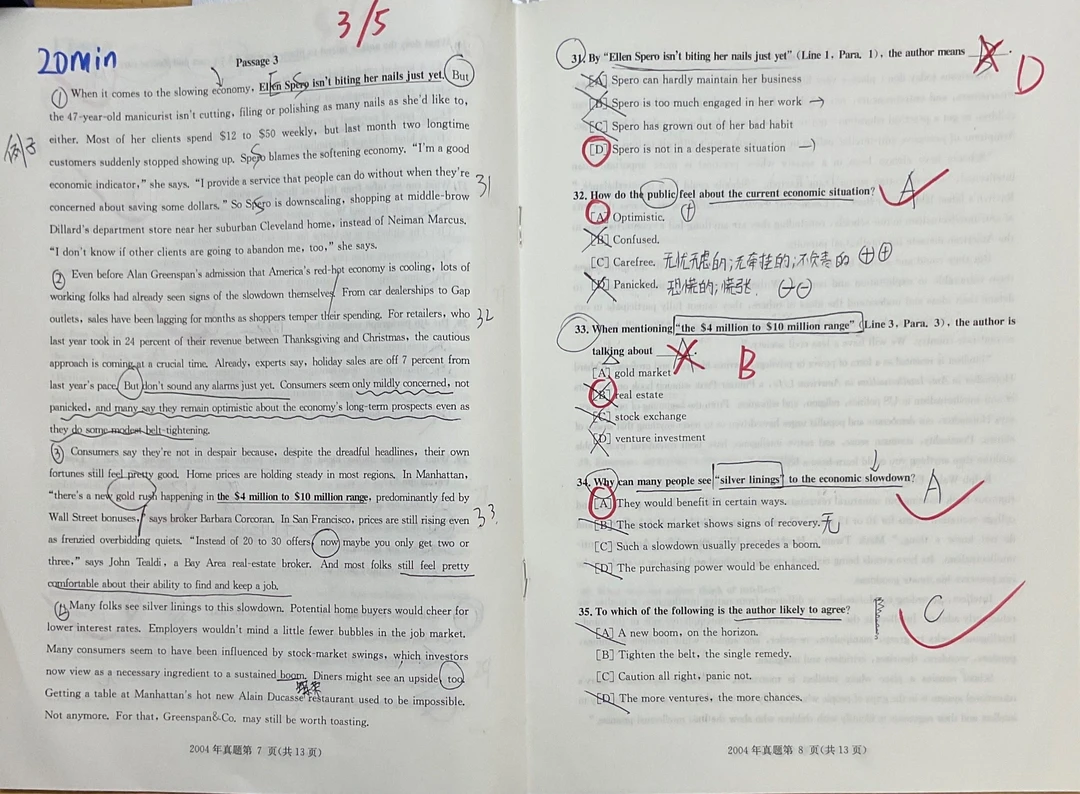 3/5
20min
Passage 3
① When it comes to the slowing economy, Ellen Spero isn't biting her nails just yet. But
the 47-year-old manicurist isn't cutting, filing or polishing as many nails as she'd like to,
either. Most of her clients spend $12 to $50 weekly, but last month two longtime
例子
customers suddenly stopped showing up. Spero blames the softening economy. "I'm a good
economic indicator," she says. "I provide a service that people can do without when they're
concerned about saving some dollars." So Spero is downscaling, shopping at middle-brow
31
Dillard's department store near her suburban Cleveland home, instead of Neiman Marcus.
"I don't know if other clients are going to abandon me, too," she says.
② Even before Alan Greenspan's admission that America's red-hot economy is cooling, lots of
working folks had already seen signs of the slowdown themselves. From car dealerships to Gap
outlets, sales have been lagging for months as shoppers temper their spending. For retailers, who
32
last year took in 24 percent of their revenue between Thanksgiving and Christmas, the cautious
approach is coming at a crucial time. Already, experts say, holiday sales are off 7 percent from
last year's pace. But don't sound any alarms just yet. Consumers seem only mildly concerned, not
panicked, and many say they remain optimistic about the economy's long-term prospects even as
they do some modest belt-tightening.
③ Consumers say they're not in despair because, despite the dreadful headlines, their own
fortunes still feel pretty good. Home prices are holding steady in most regions. In Manhattan,
"there's a new gold rush happening in the $4 million to $10 million range, predominantly fed by
Wall Street bonuses," says broker Barbara Corcoran. In San Francisco, prices are still rising even
33
as frenzied overbidding quiets. "Instead of 20 to 30 offers, now maybe you only get two or
three," says John Tealdi, a Bay Area real-estate broker. And most folks still feel pretty
comfortable about their ability to find and keep a job.
④ Many folks see silver linings to this slowdown. Potential home buyers would cheer for
lower interest rates. Employers wouldn't mind a little fewer bubbles in the job market.
Many consumers seem to have been influenced by stock-market swings, which investors
now view as a necessary ingredient to a sustained boom. Diners might see an upside, too.
Getting a table at Manhattan's hot new Alain Ducasse restaurant used to be impossible.
Not anymore. For that, Greenspan & Co. may still be worth toasting.
2004 年真题第 7 页(共 13 页)
31. By "Ellen Spero isn't biting her nails just yet" (Line 1, Para. 1), the author means
D
[A] Spero can hardly maintain her business
[B] Spero is too much engaged in her work →
[C] Spero has grown out of her bad habit
[D] Spero is not in a desperate situation →
32. How do the public feel about the current economic situation? A
[A] Optimistic. ⊕
[B] Confused.
[C] Carefree. 无忧无虑的;无牵挂的;不负责的 ⊕⊕
[D] Panicked. 恐慌的;慌张 ⊖⊖
33. When mentioning "the $4 million to $10 million range" (Line 3, Para. 3), the author is
talking about ______. A B
[A] gold market
[B] real estate
[C] stock exchange
[D] venture investment
34. Why can many people see "silver linings" to the economic slowdown? A
[A] They would benefit in certain ways.
[B] The stock market shows signs of recovery. 无
[C] Such a slowdown usually precedes a boom.
[D] The purchasing power would be enhanced.
35. To which of the following is the author likely to agree? C
[A] A new boom, on the horizon.
[B] Tighten the belt, the single remedy.
[C] Caution all right, panic not.
[D] The more ventures, the more chances.
2004 年真题第 8 页(共 13 页)